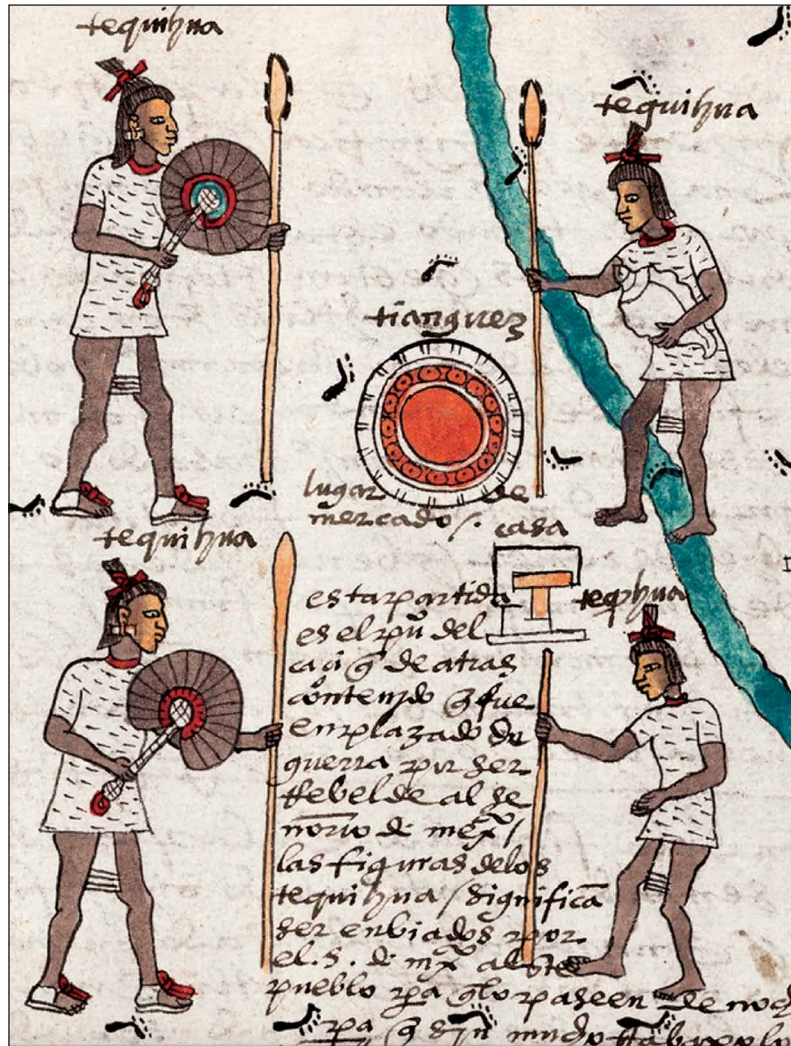 tequihua
tequihua
tianguez
lugar de
mercado /.
casa
tequihua
teqihua
esta partida
es el pū del
caciq̄ de atras
contenido q̄ fue
enplazado de
guerra por ser
Rebelde al se
norio de mexº /
las figuras de los
tequihua / significā
ser enbiados por
el .s. de mexº al dhō
pueblo pa q̄ lo paseen de noch
pa q̄ sin mucho trabaxo lo